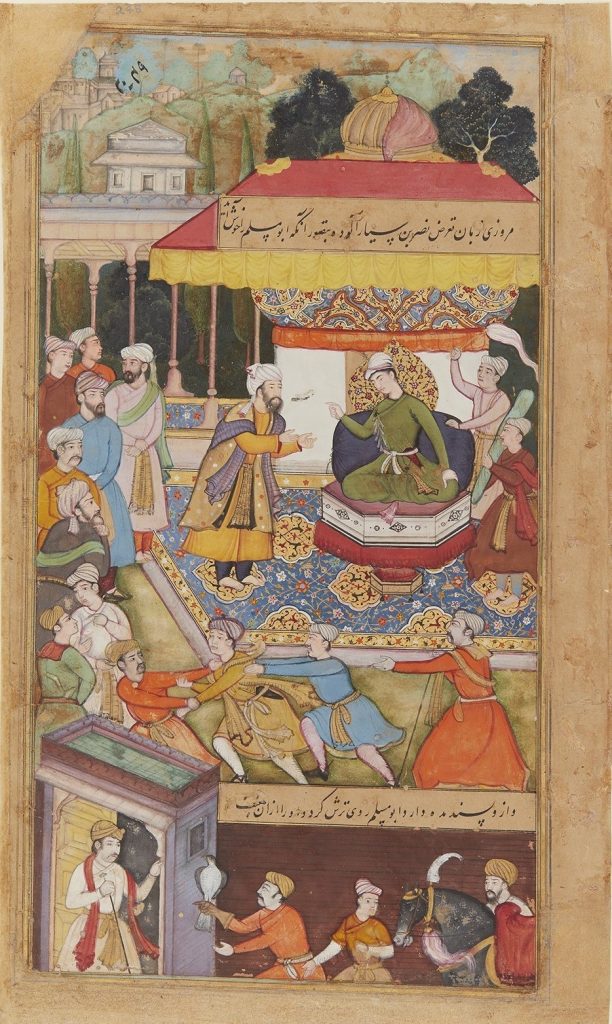 مروزی زبان تعرض نصربن سیار آلوده بتصور آنکه ابومسلم را خوش آید
و ازو پسندیده دارد ابومسلم روی ترش کرد و او را از ان